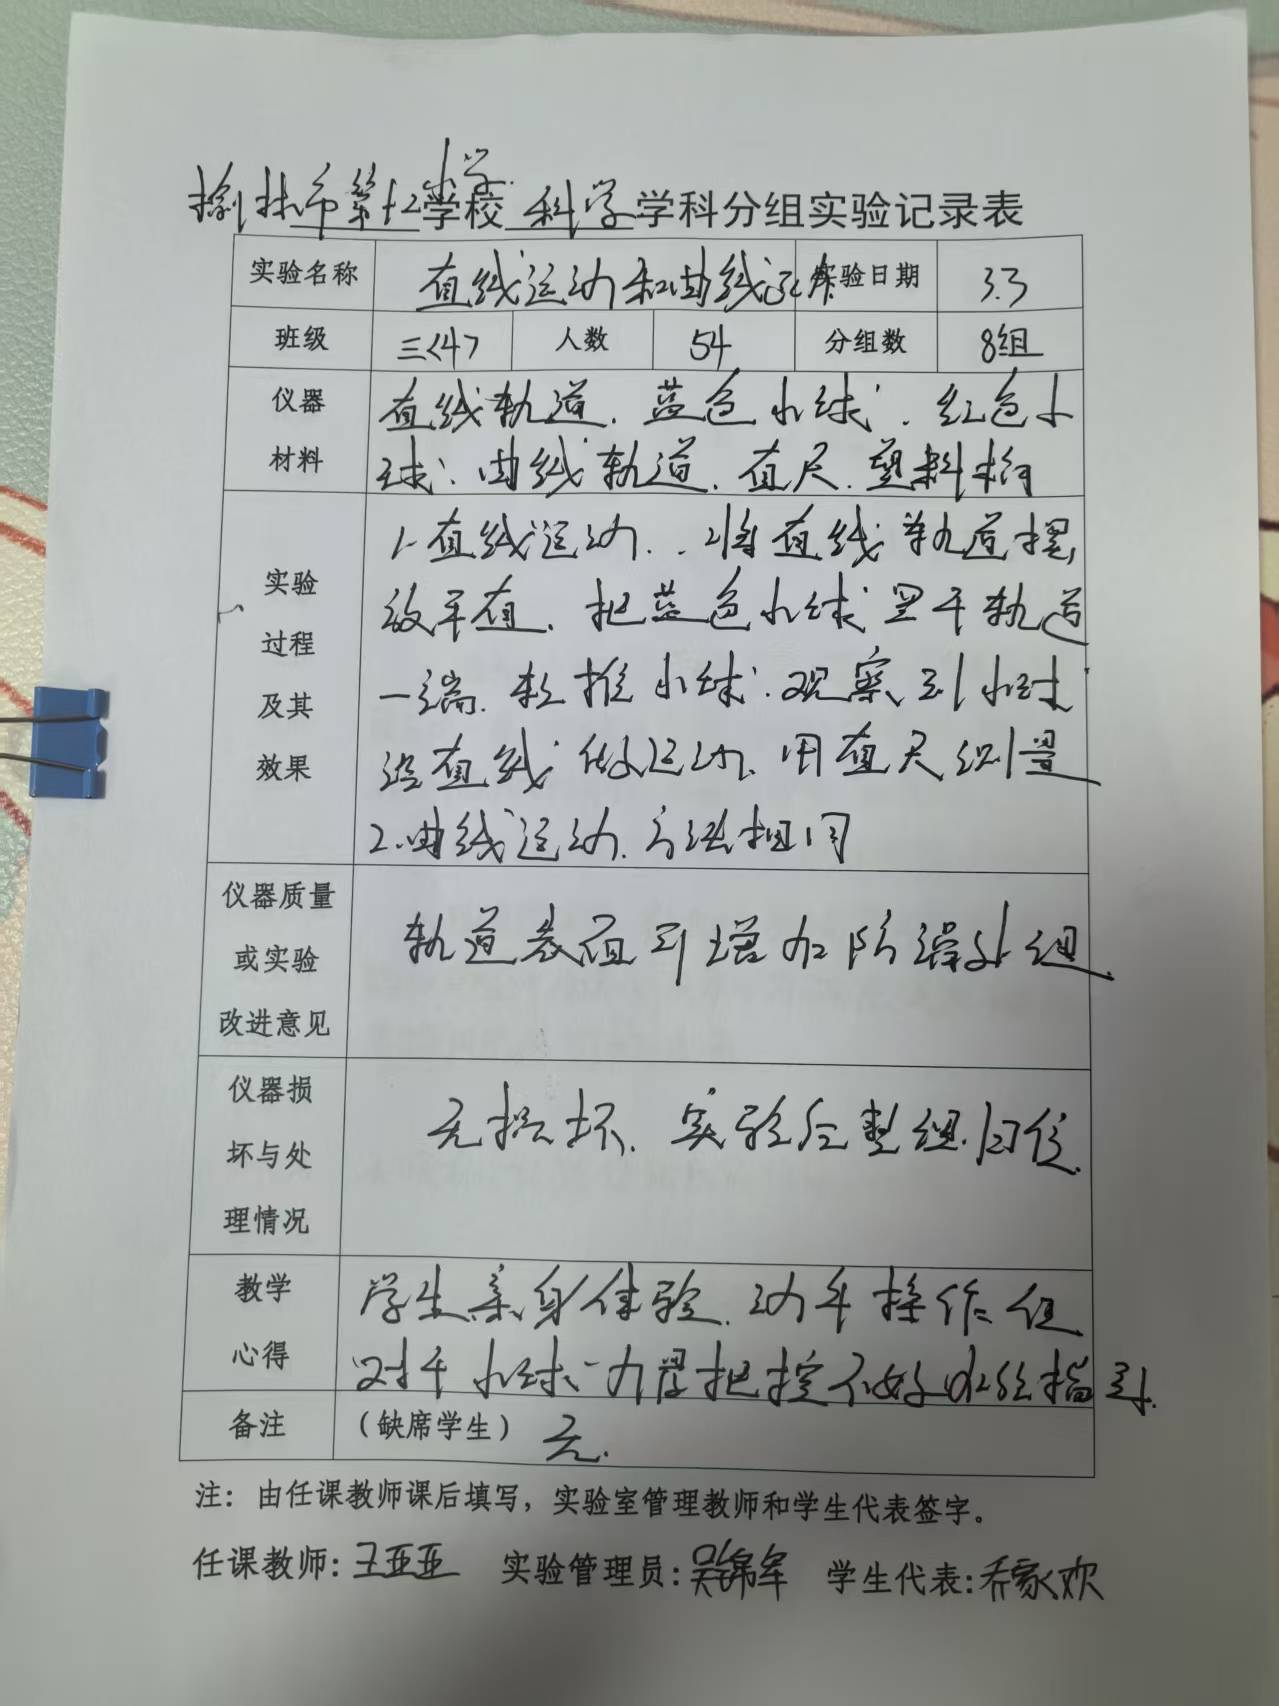 榆林市第十二小学学校 科学 学科分组实验记录表
实验名称 直线运动和曲线运动 实验日期 3.3
班级 三<4> 人数 54 分组数 8组
仪器材料 直线轨道、蓝色小球、红色小
球、曲线轨道、直尺、塑料桥
实验过程及其效果 1.直线运动、将直线轨道摆
放平直、把蓝色小球置于轨道
一端、轻推小球、观察到小球
沿直线做运动、用直尺测量
2.曲线运动、方法相同
仪器质量或实验改进意见 轨道表面可增加防滑处理
仪器损坏与处理情况 无损坏、实验后整理归位
教学心得 学生亲身体验、动手操作但
对于小球力度把控不好 指导.
备注 (缺席学生) 无.
注:由任课教师课后填写,实验室管理教师和学生代表签字。
任课教师:王亚亚 实验管理员:吴锦军 学生代表:乔家欢